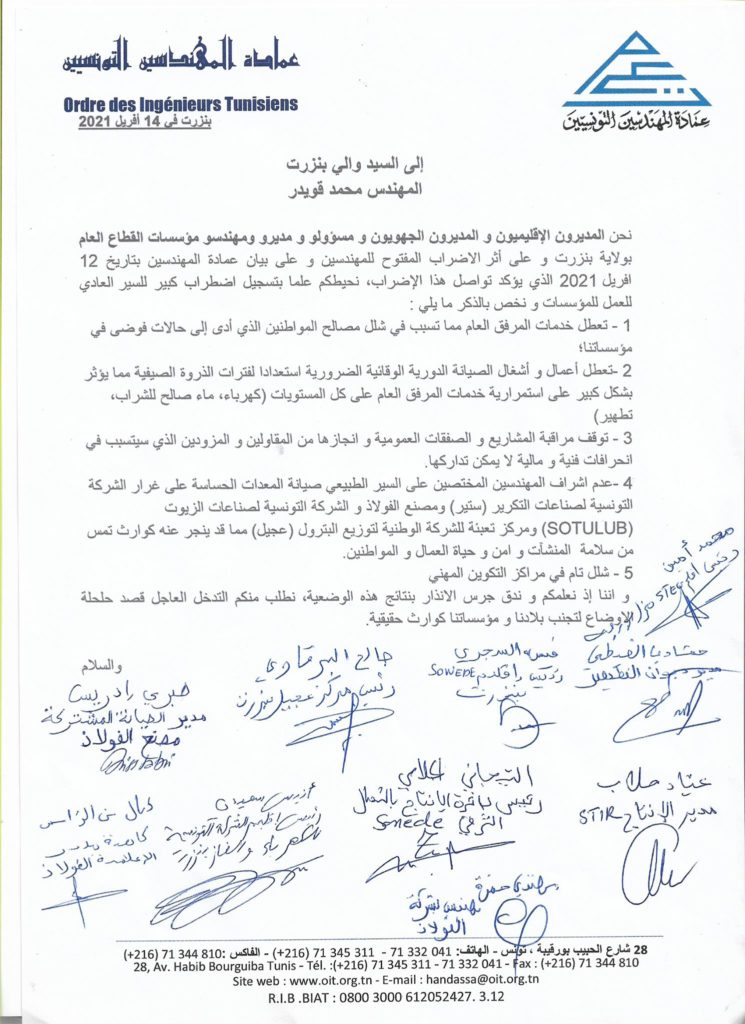 عمادة المهندسين التونسيين
Ordre des Ingénieurs Tunisiens
عمادة المهندسين التونسيين
بنزرت في 14 أفريل 2021
إلى السيد والي بنزرت
المهندس محمد قويدر
نحن المديرون الإقليميون و المديرون الجهويون و مسؤولو و مديرو ومهندسو مؤسسات القطاع العام
بولاية بنزرت و على أثر الاضراب المفتوح للمهندسين و على بيان عمادة المهندسين بتاريخ 12
افريل 2021 الذي يؤكد تواصل هذا الإضراب، نحيطكم علما بتسجيل اضطراب كبير للسير العادي
للعمل للمؤسسات و نخص بالذكر ما يلي :
1 - تعطل خدمات المرفق العام مما تسبب في شلل مصالح المواطنين الذي أدى إلى حالات فوضى في
مؤسساتنا؛
2 -تعطل أعمال و أشغال الصيانة الدورية الوقائية الضرورية استعدادا لفترات الذروة الصيفية مما يؤثر
بشكل كبير على استمرارية خدمات المرفق العام على كل المستويات (كهرباء، ماء صالح للشراب،
تطهير)
3 - توقف مراقبة المشاريع و الصفقات العمومية و انجازها من المقاولين و المزودين الذي سيتسبب في
انحرافات فنية و مالية لا يمكن تداركها.
4 -عدم اشراف المهندسين المختصين على السير الطبيعي صيانة المعدات الحساسة على غرار الشركة
التونسية لصناعات التكرير (ستير) ومصنع الفولاذ و الشركة التونسية لصناعات الزيوت
(SOTULUB) ومركز تعبئة للشركة الوطنية لتوزيع البترول (عجيل) مما قد ينجر عنه كوارث تمس
من سلامة المنشآت و امن و حياة العمال و المواطنين.
5 - شلل تام في مراكز التكوين المهني
و اننا إذ نعلمكم و ندق جرس الانذار بنتائج هذه الوضعية، نطلب منكم التدخل العاجل قصد حلحلة
الاوضاع لتجنب بلادنا و مؤسساتنا كوارث حقيقية.
والسلام
محمد أمين
STEG
رئيس إقليم SONEDE
بنزرت
رئيس مركز عجيل بنزرت
صبري بادريس
مدير الصيانة المشتركة
مصنع الفولاذ
مدير الإنتاج STIR
التيجاني
الشرقي Sonede
أنيس سعيدي
رئيس إقليم الشركة التونسية
للكهرباء والغاز بنزرت
كمال بن
الفولاذ
حمزة
مهندس بشركة
الفولاذ
28 شارع الحبيب بورقيبة ، تونس - الهاتف: 041 332 71 - 311 345 71 (216+) - الفاكس :810 344 71 (216+)
28, Av. Habib Bourguiba Tunis - Tél. :(+216) 71 345 311 - 71 332 041 - Fax : (+216) 71 344 810
Site web : www.oit.org.tn - E-mail : handassa@oit.org.tn
R.I.B .BIAT : 0800 3000 612052427. 3.12